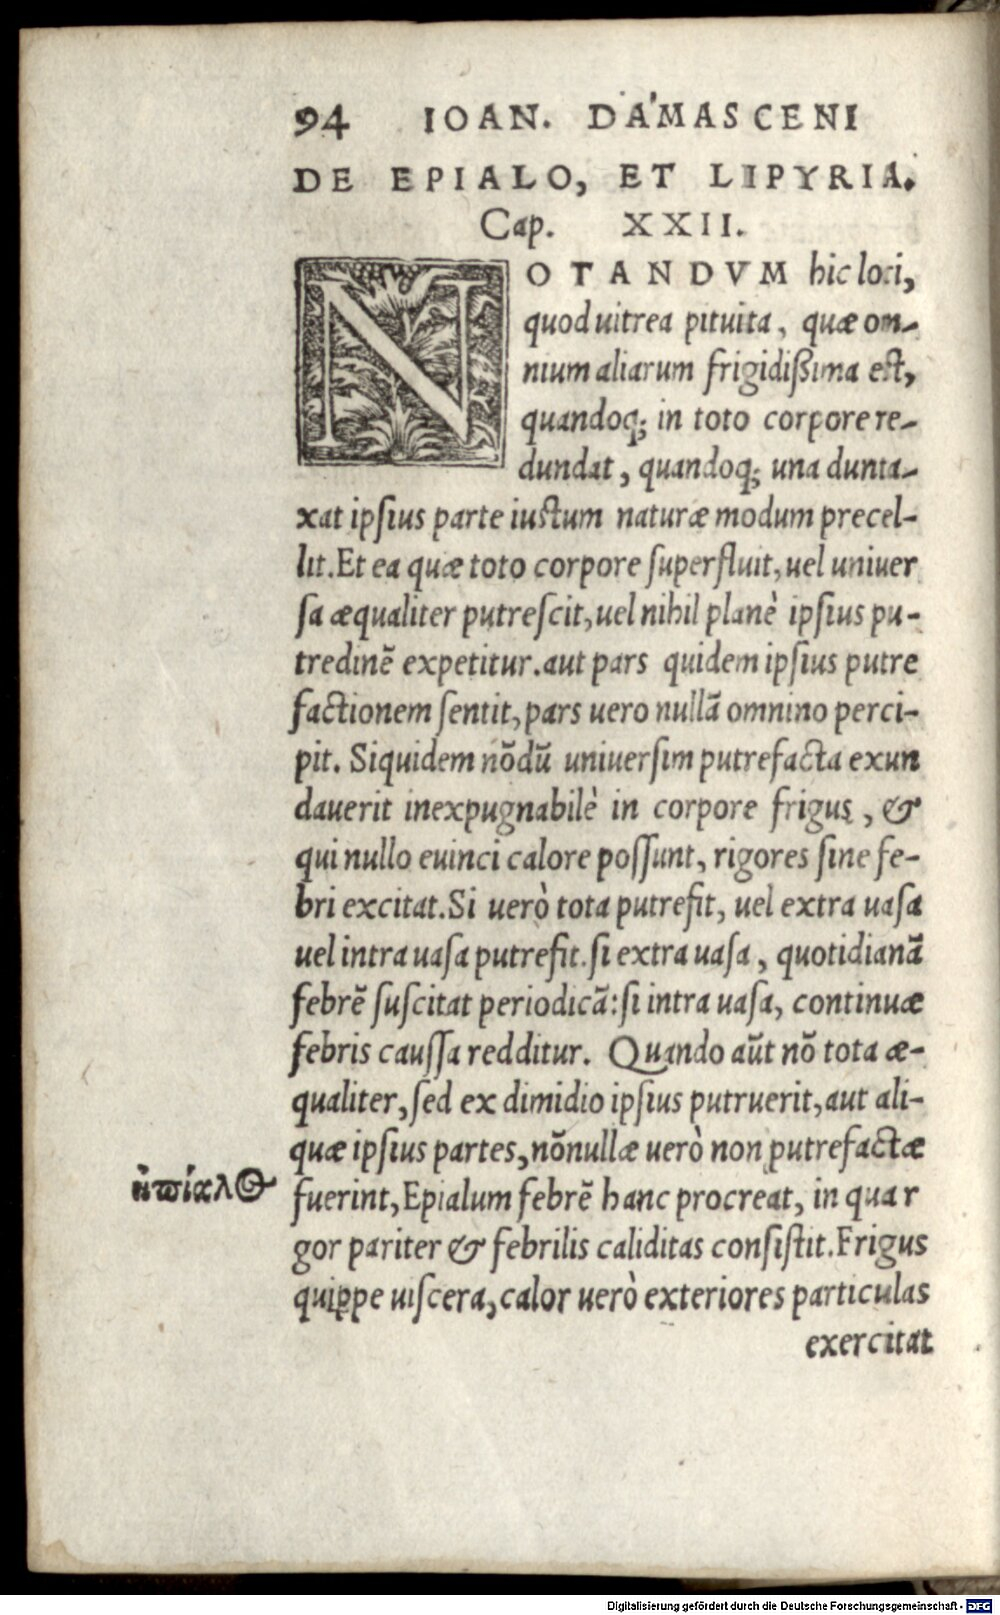 94 IOAN. DAMASCENI
DE EPIALO, ET LIPYRIA.
Cap. XXII.
NOTANDVM hic loci,
quod uitrea pituita, quæ om-
nium aliarum frigidißima est,
quandoq; in toto corpore re-
dundat, quandoq; una dunta-
xat ipſius parte iustum naturæ modum precel-
lit. Et ea quæ toto corpore ſuperfluit, uel uniuer
ſa æqualiter putreſcit, uel nihil planè ipſius pu-
tredinē expetitur. aut pars quidem ipſius putre
factionem ſentit, pars uero nullā omnino perci-
pit. Siquidem nōdū uniuerſim putrefacta exun
dauerit inexpugnabilè in corpore frigus, &
qui nullo euinci calore poſſunt, rigores ſine fe-
bri excitat. Si uerò tota putrefit, uel extra uaſa
uel intra uaſa putrefit. ſi extra uaſa, quotidianā
febrē ſuſcitat periodicā: ſi intra uaſa, continuæ
febris cauſſa redditur. Quando aūt nō tota æ-
qualiter, ſed ex dimidio ipſius putruerit, aut ali-
quæ ipſius partes, nōnullæ uerò non putrefactæ
ἠπίαλος
fuerint, Epialum febrē hanc procreat, in qua r
gor pariter & febrilis caliditas conſiſtit. Frigus
quippe uiſcera, calor uerò exteriores particulas
exercitat
Digitalisierung gefördert durch die Deutsche Forschungsgemeinschaft - DFG